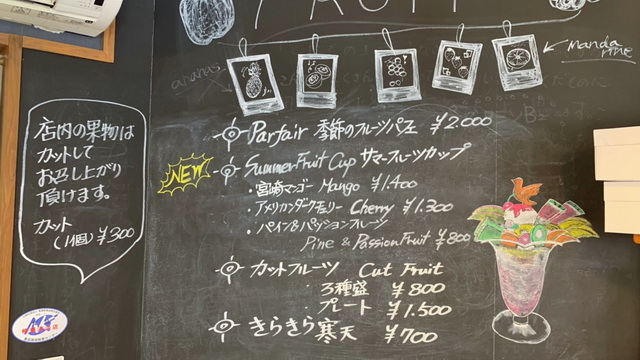 FRUIT
ananas
Mandarine
店内の果物は
カットして
お召し上がり
頂けます。
カット
(1個) ¥300
Parfair 季節のフルーツパフェ ¥2.000
NEW
Summer Fruit Cup サマーフルーツカップ
・宮崎マンゴー Mango ¥1.400
・アメリカンダークチェリー Cherry ¥1.300
・パイン&パッションフルーツ
Pine & Passion Fruit ¥800
カットフルーツ Cut Fruit
・3種盛 ¥800
・プレート ¥1.500
きらきら寒天 ¥700